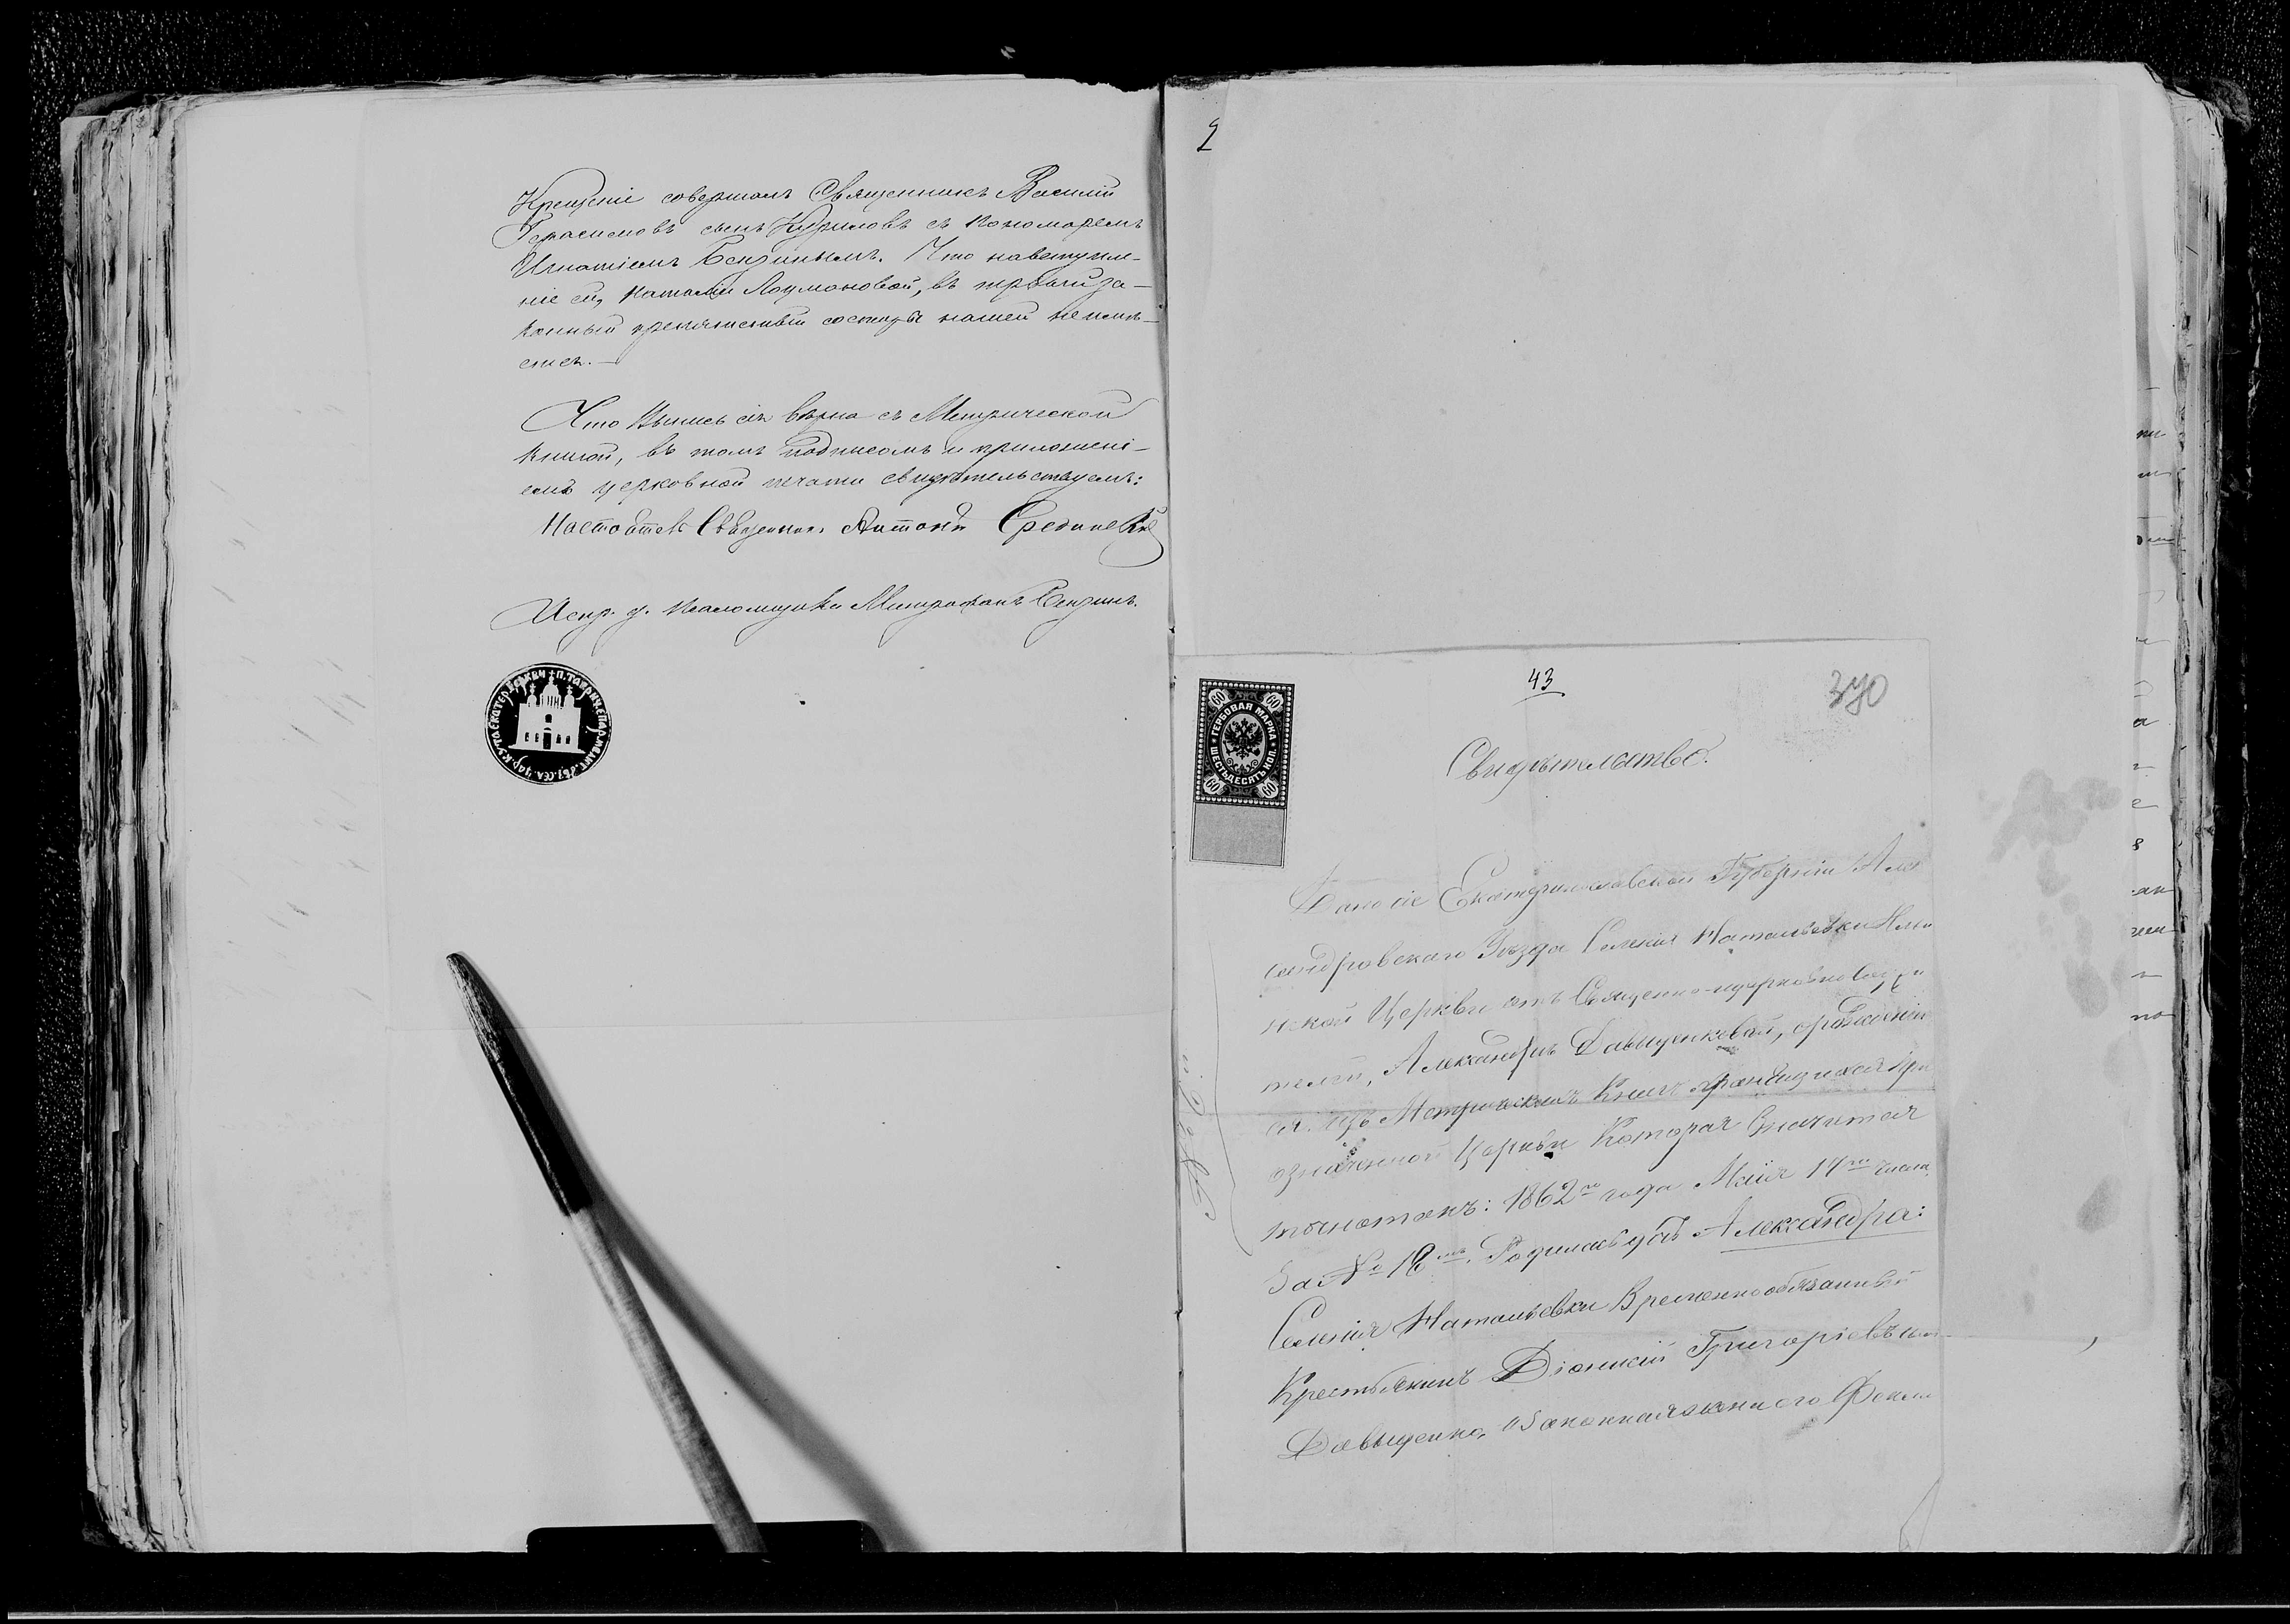 Крещеніе совершалъ Священникъ Василій
Герасимовъ сынъ Куриловъ съ Пономаремъ
Игнатіемъ Бензинымъ. Что на вступле-
ніе ей, Наталіи Лоумоновой, въ первый за-
конный препятствій со стороны нашей не имѣ-
ется.—
Что Выпись сія вѣрна съ Метрической
книгой, въ томъ подписомъ и приложені-
емъ церковной печати свидѣтельствуемъ:
Настоятель Священникъ Антоній
Испр. д. Псаломщика Митрофанъ Бензинъ.
2
43
370
60 60
ГЕРБОВАЯ МАРКА
ШЕСТЬДЕСЯТЪ КОП.
60 60
Свидѣтельство.
Дано сіе Екатеринославской Губерніи Алек
сандровскаго Уѣзда Селенія Натальевки
ской Церкви отъ Священно-церковнослужи
телей, Александрѣ Давыденковой, о рожденіи
ея изъ Метрическихъ Книгъ хранящихся при
означенной Церкви Которая Значится
точно такъ: 1862го года Маія 17го числа
За № 18мъ. Родилась дочь Александра:
Селенія Натальевки Временнообязанный
Крестьянинъ Діонисій Григоріевъ сынъ
Давыденко, и Законная жена его